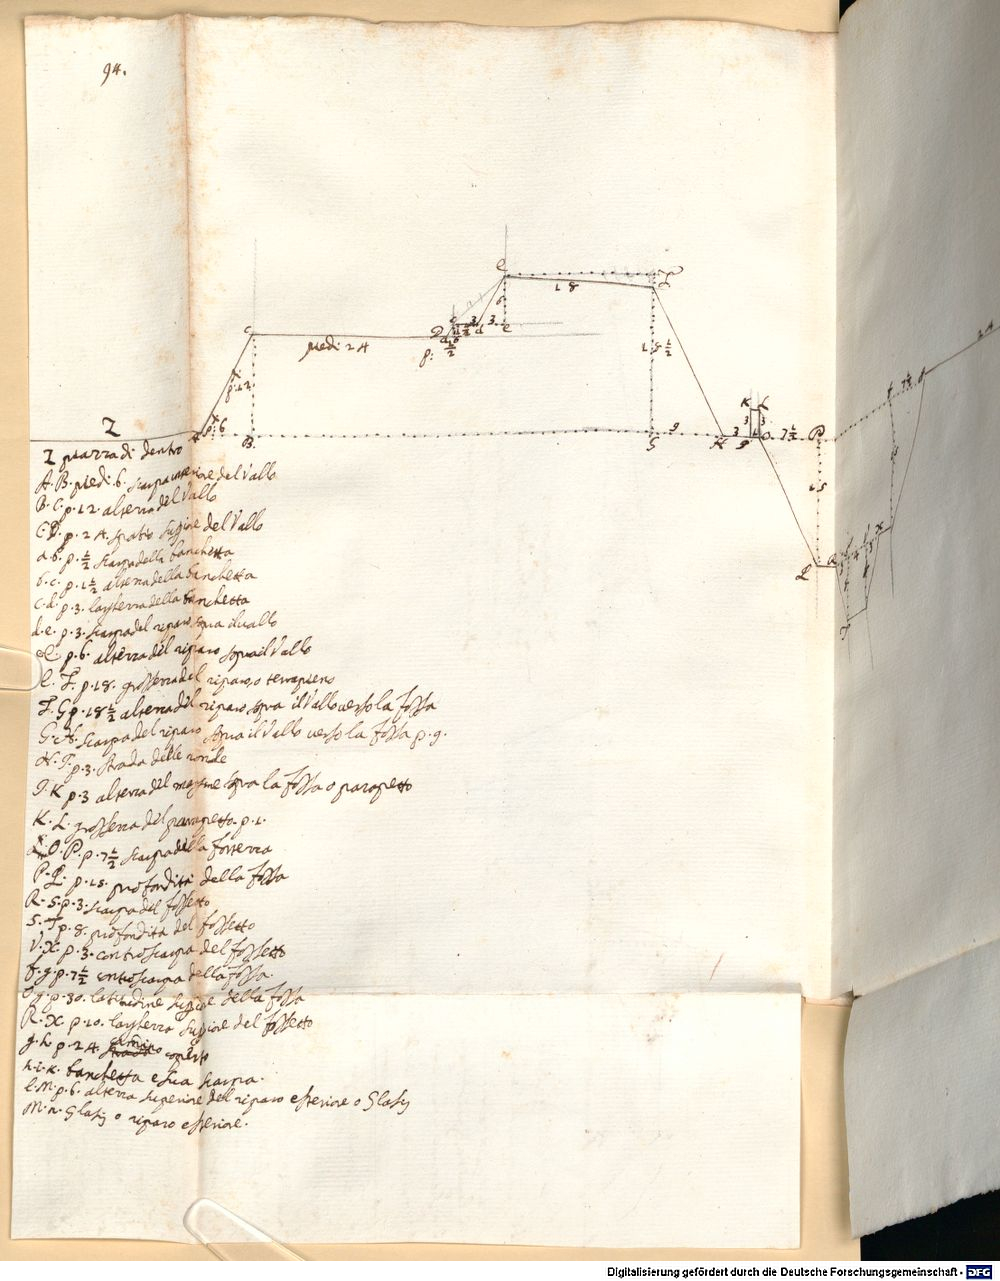 94.
piedi 24
18
18 1/2
p. 12
p. 6
7 1/2
15
Z
Z piazza di dentro
A. B. piedi. 6. scarpa interiore del Vallo
B. C. p. 12. altezza del Vallo
C. D. p. 24. spatio sup.re del Vallo
a. b. p. 1/2 scarpa della banchetta
b. c. p. 1 1/2 altezza della banchetta
c. d. p. 3. larghezza della banchetta
d. e. p. 3. scarpa del riparo sopra il vallo
p. 6. altezza del riparo sopra il Vallo
p. 18. grossezza del riparo, o terrapieno
F. G p. 18 1/2 altezza del riparo sopra il Vallo verso la fossa
G. H. scarpa del riparo sopra il Vallo verso la fossa p. 9.
H. I. p. 3. strada delle ronde
I. K p. 3 altezza del sopra la fossa o parapetto
K. L. grossezza del parapetto. p. 1.
O. P. p. 7 1/2 scarpa della fortezza
P. Q. p. 15. profondità della fossa
R. S. p. 3. scarpa del fossetto
S. T p. 8. profondità del fossetto
V. X. p. 3. controscarpa del fossetto
f. g p. 7 1/2 controscarpa della fossa.
O g. p. 30. latitudine sup.re della fossa
R. X. p. 10. larghezza sup.re del fossetto
g. h. p. 24. camino coperto
h. i. k. banchetta e sua scarpa.
l. M. p. 6. altezza superiore del riparo esteriore o Glasis
M. n. Glasis o riparo esteriore.
Digitalisierung gefördert durch die Deutsche Forschungsgemeinschaft - DFG